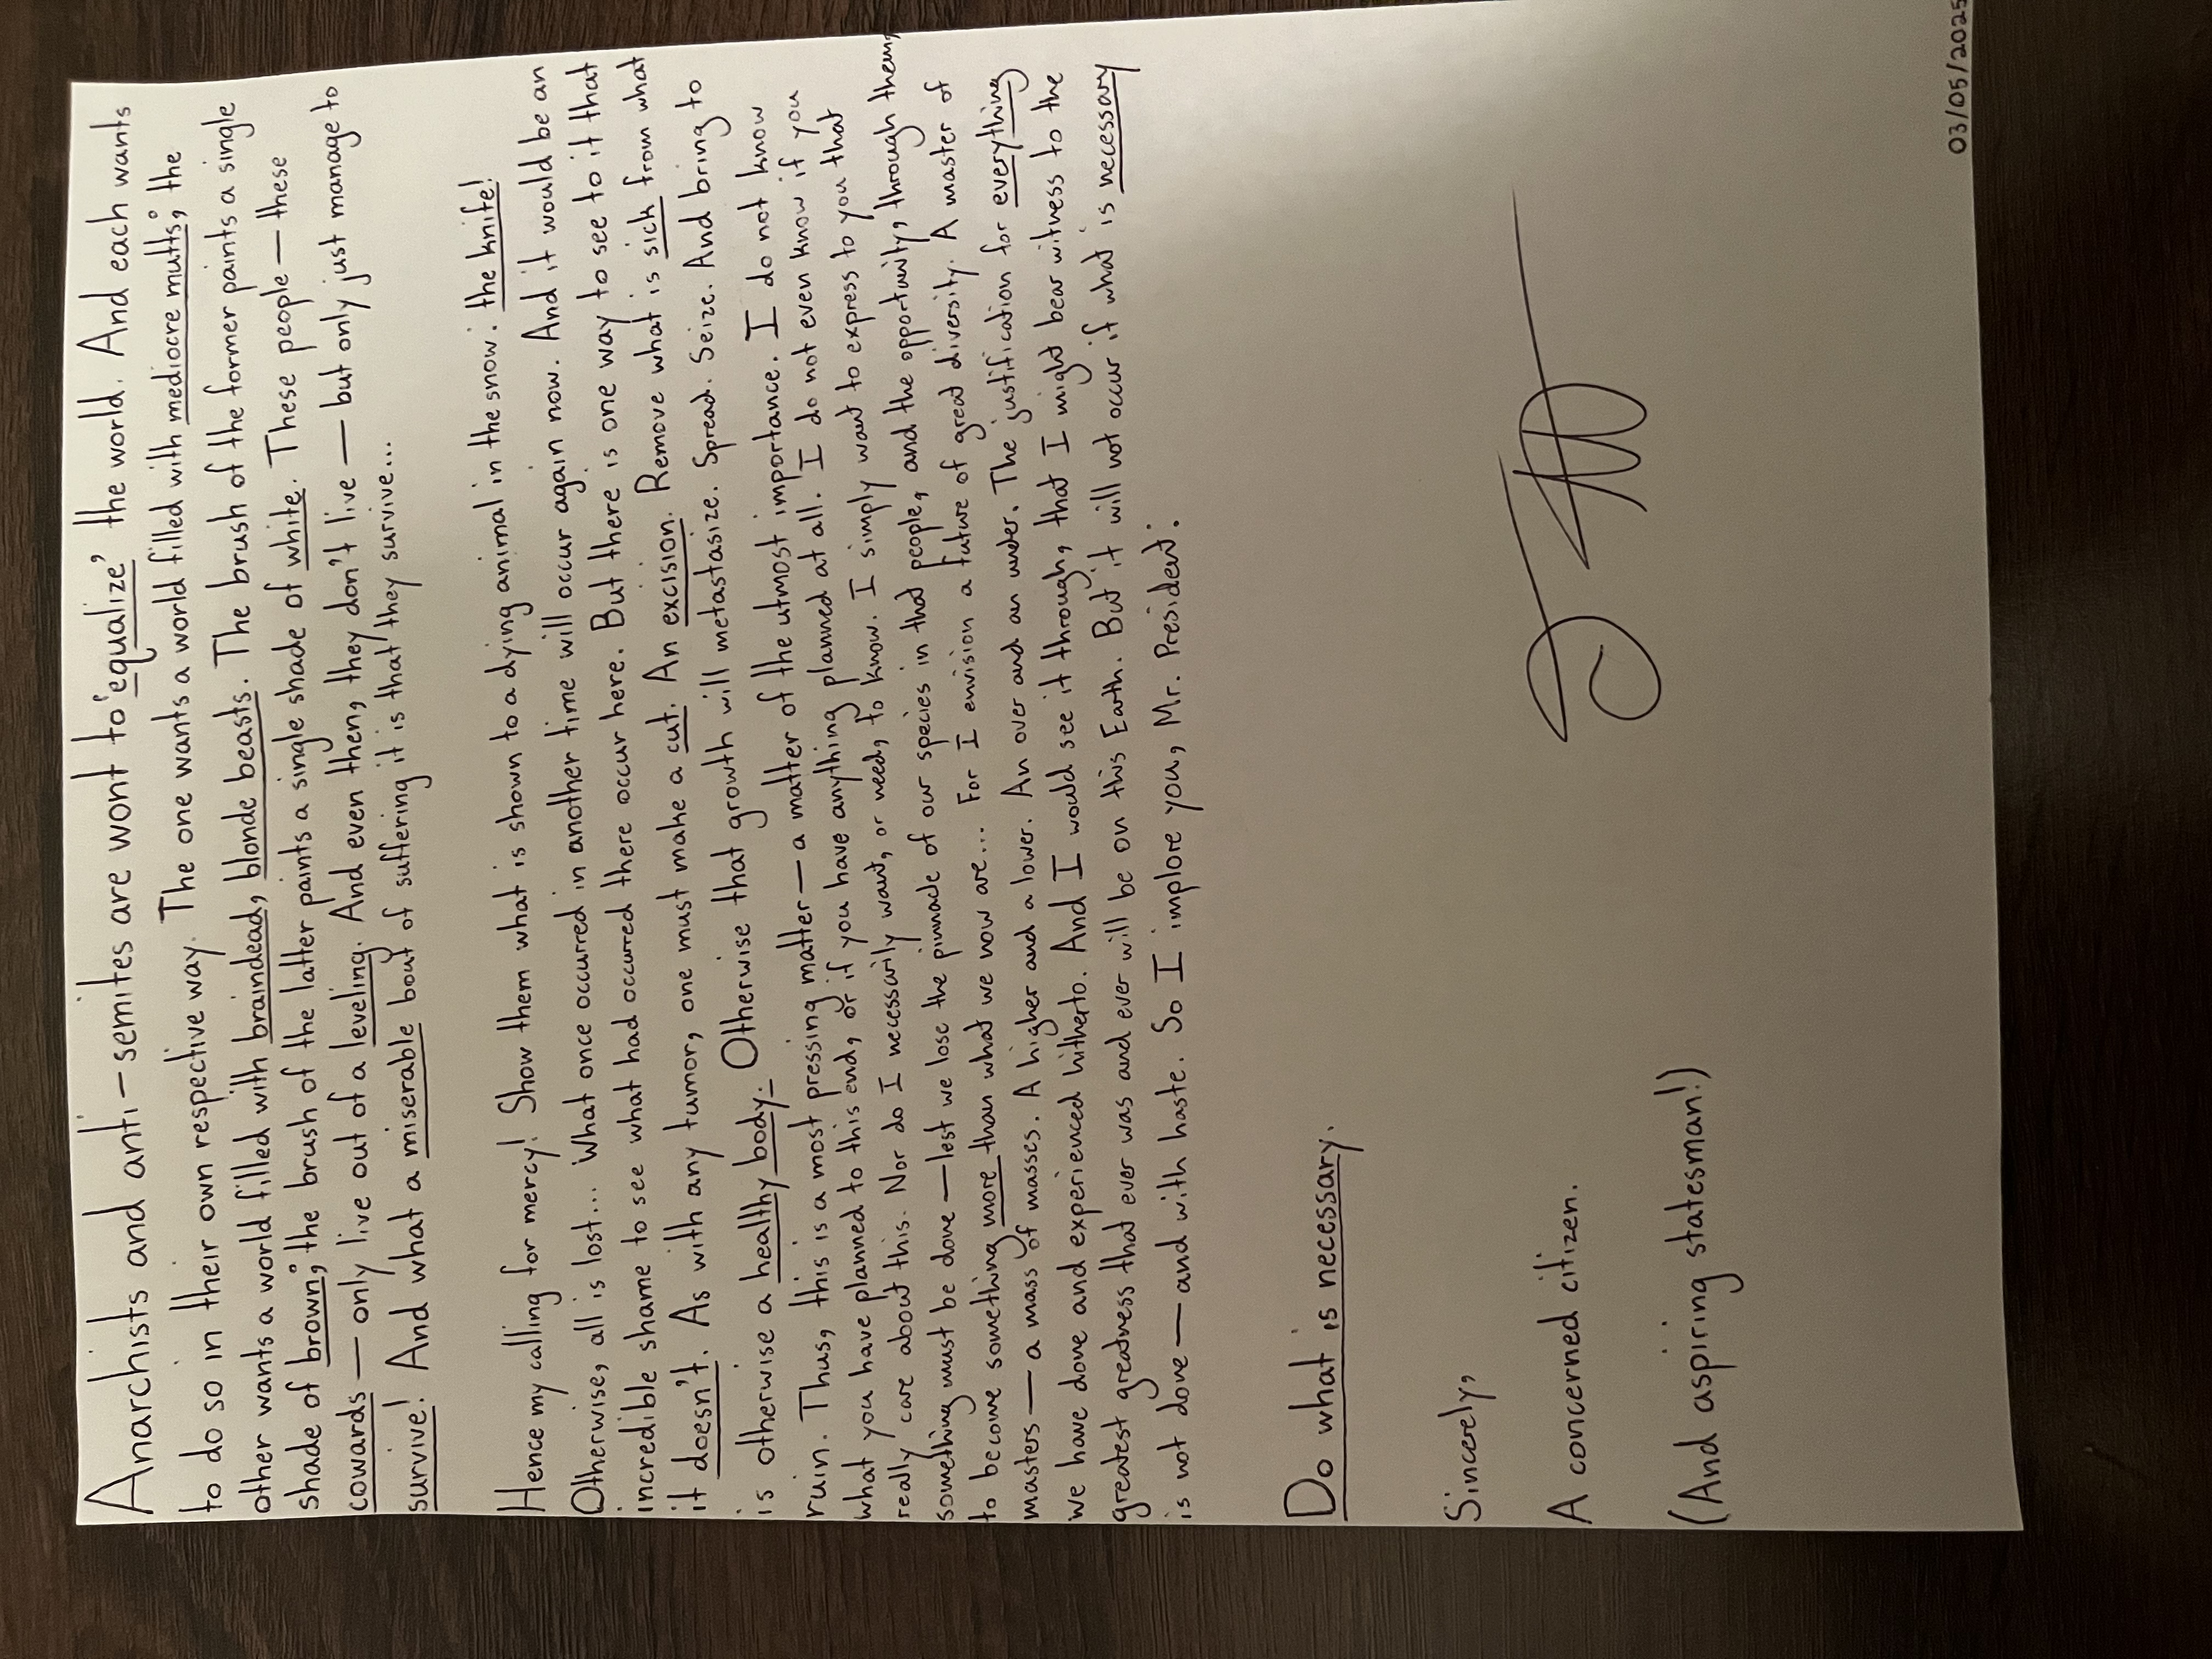 Anarchists and anti-semites are wont to 'equalize' the world. And each wants
to do so in their own respective way. The one wants a world filled with mediocre mutts; the
other wants a world filled with braindead, blonde beasts. The brush of the former paints a single
shade of brown; the brush of the latter paints a single shade of white. These people — these
cowards — only live out of a leveling. And even then, they don't live — but only just manage to
survive! And what a miserable bout of suffering it is that they survive...
Hence my calling for mercy! Show them what is shown to a dying animal in the snow: the knife!
Otherwise, all is lost... What once occurred in another time will occur again now. And it would be an
incredible shame to see what had occurred there occur here. But there is one way to see to it that
it doesn't. As with any tumor, one must make a cut. An excision. Remove what is sick from what
is otherwise a healthy body. Otherwise that growth will metastasize. Spread. Seize. And bring to
ruin. Thus, this is a most pressing matter — a matter of the utmost importance. I do not know
what you have planned to this end, or if you have anything planned at all. I do not even know if you
really care about this. Nor do I necessarily want, or need, to know. I simply want to express to you that
something must be done — lest we lose the pinnacle of our species in that people, and the opportunity, through them,
to become something more than what we now are... For I envision a future of great diversity. A master of
masters — a mass of masses. A higher and a lower. An over and an under. The justification for everything
we have done and experienced hitherto. And I would see it through, that I might bear witness to the
greatest greatness that ever was and ever will be on this Earth. But it will not occur if what is necessary
is not done — and with haste. So I implore you, Mr. President:
Do what is necessary.
Sincerely,
A concerned citizen.
(And aspiring statesman!)
03/05/2025